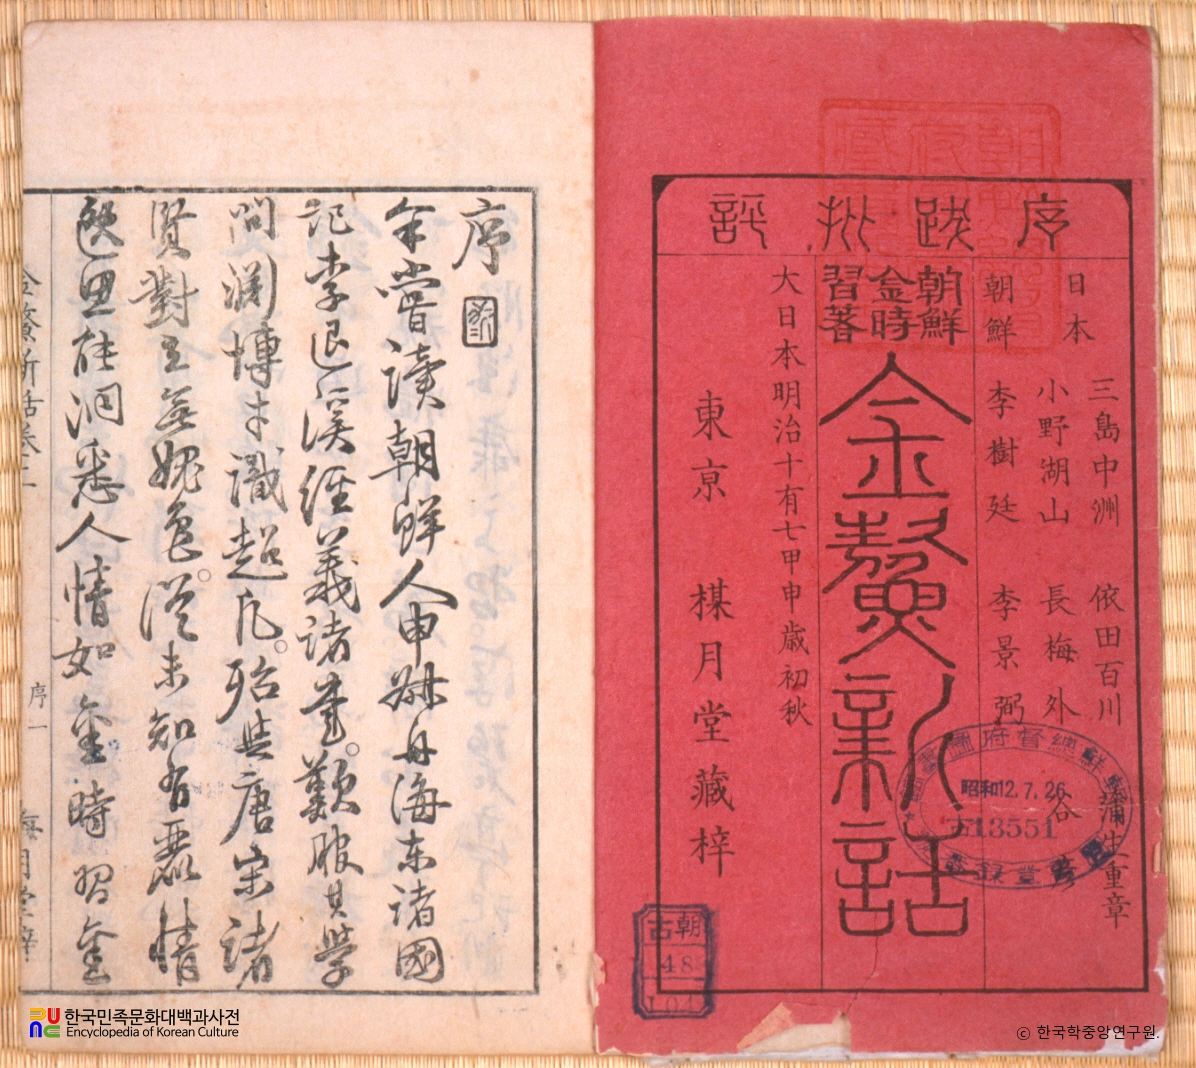 序跋批評
日本
三島中洲 依田百川 蒲生重章
小野湖山 長梅外 谷
朝鮮 李樹廷 李景弼
朝鮮
金時
習著
金鰲新話
大日本明治十有七甲申歲初秋
東京 楳月堂藏梓
昭和12.7.26
古13551
朝
古
48
序
余嘗讀朝鮮人申叔舟海東諸國
記李退溪經義諸書。歎服其學
問淵博才識超凡。殆與唐宋諸
賢對立無媿色。從未知有麗情
逸思能洞悉人情如金時習金
序一
梅月堂梓
한국민족문화대백과사전
Encyclopedia of Korean Culture
© 한국학중앙연구원.